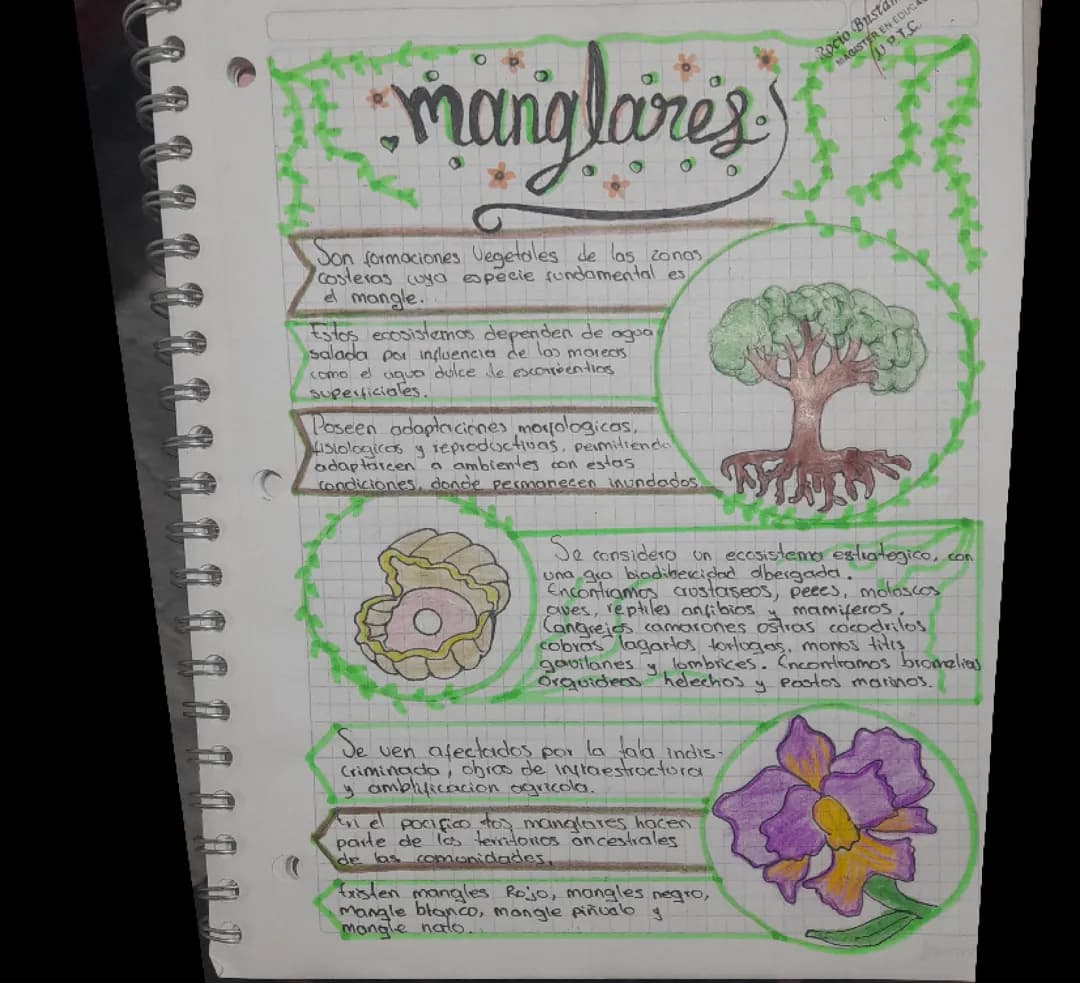 Rocio Bustam
MAGISTER EN EDUCA
U.P.T.C.
manglares
Son formaciones Vegetales de las zonas
costeras cuya especie fundamental es
el mangle.
Estos ecosistemas dependen de agua
salada por influencia de las mareas
como el agua dulce de escorrentias
superficiales.
Poseen adaptaciones morfologicas,
fisiologicas y reproductivas, permitiendo
adaptarcen a ambientes con estas
condiciones, donde permanecen inundados.
Se considera un ecosistema estrategico, con
una gra biodibercidad albergada.
Encontramos crustaseos, peces, moluscos
aves, reptiles anfibios y mamiferos.
Cangrejos camarones ostras cocodrilos
cobras lagartos tortugas, monos titis
gavilanes y lombrices. Encontramos bromelias
orquideas helechos y pastos marinos.
Se ven afectados por la tala indis-
criminada, obras de infraestructura
y amplificacion agricola.
En el pacifico los manglares hacen
parte de los territorios ancestrales
de las comunidades.
Existen mangles Rojo, mangles negro,
mangle blanco, mangle piñuelo y
mangle nato.